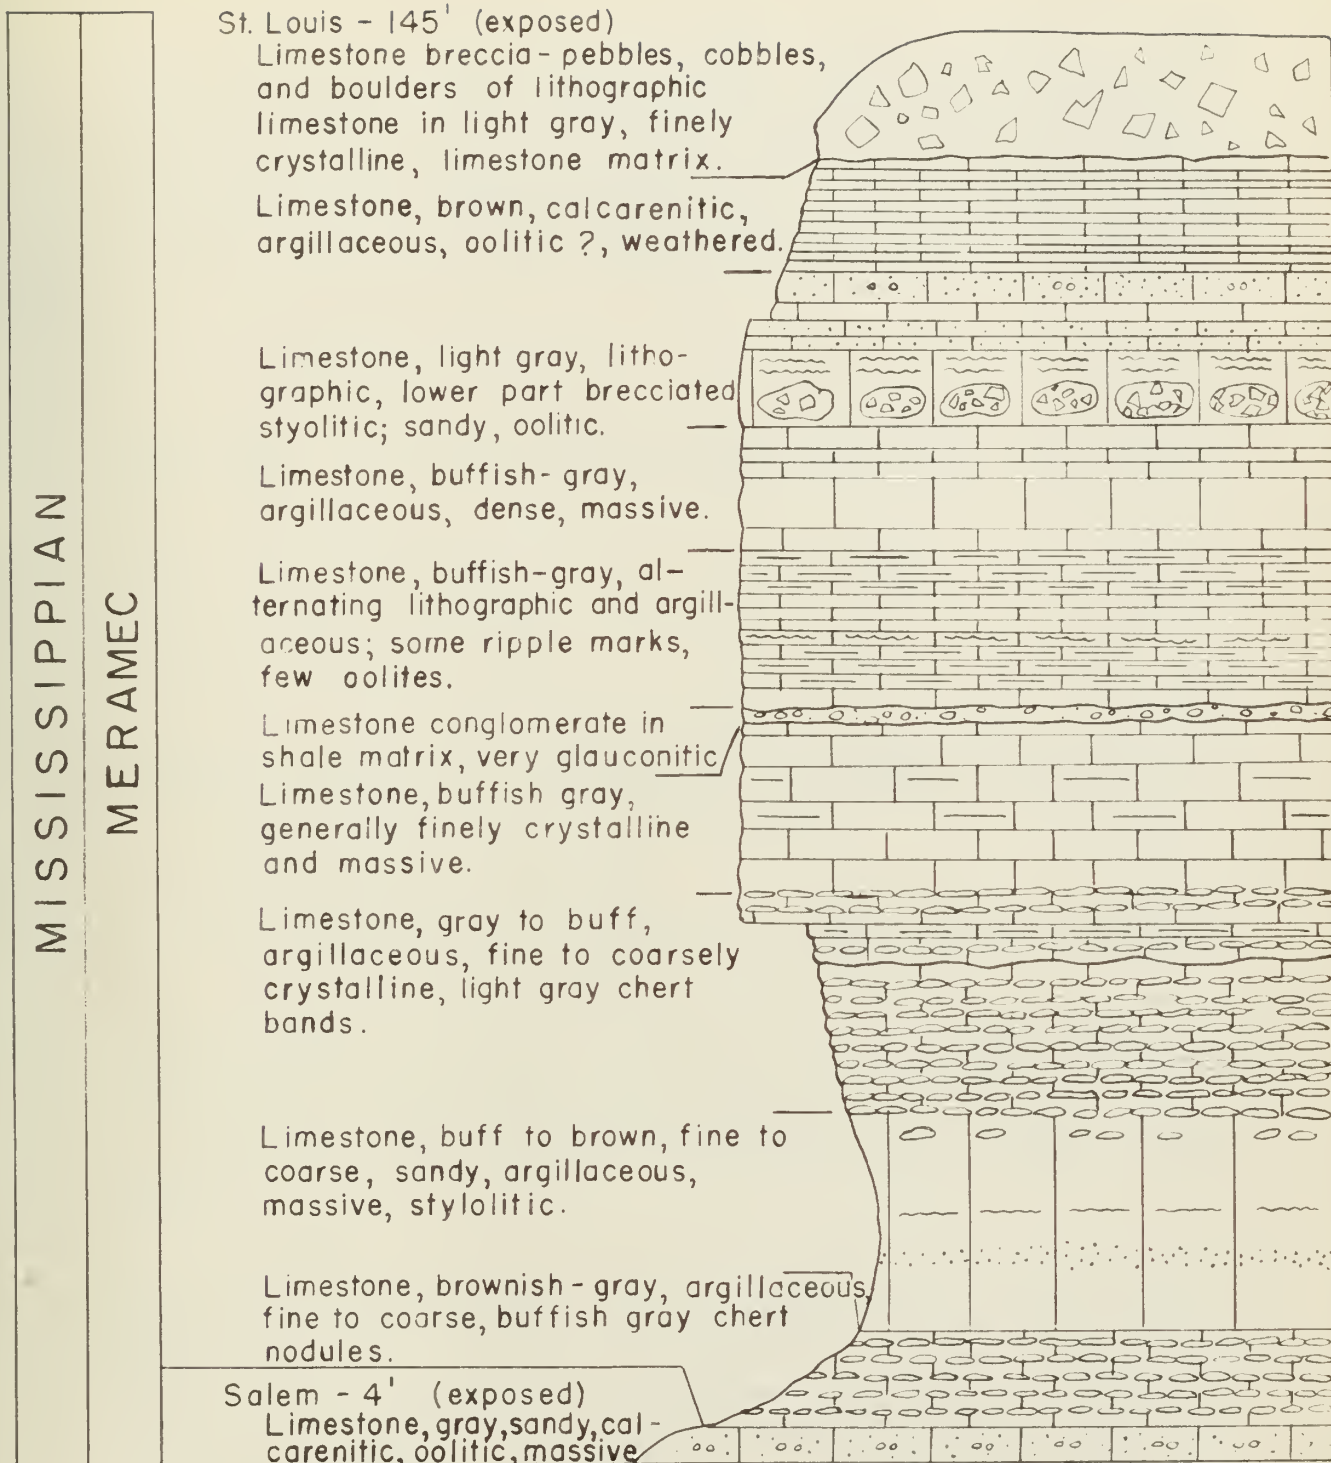 MISSISSIPPIAN
MERAMEC
St. Louis - 145' (exposed)
Limestone breccia - pebbles, cobbles,
and boulders of lithographic
limestone in light gray, finely
crystalline, limestone matrix.
Limestone, brown, calcarenitic,
argillaceous, oolitic ?, weathered.
Limestone, light gray, litho-
graphic, lower part brecciated
styolitic; sandy, oolitic.
Limestone, buffish-gray,
argillaceous, dense, massive.
Limestone, buffish-gray, al-
ternating lithographic and argill-
aceous; some ripple marks,
few oolites.
Limestone conglomerate in
shale matrix, very glauconitic
Limestone, buffish gray,
generally finely crystalline
and massive.
Limestone, gray to buff,
argillaceous, fine to coarsely
crystalline, light gray chert
bands.
Limestone, buff to brown, fine to
coarse, sandy, argillaceous,
massive, stylolitic.
Limestone, brownish-gray, argillaceous,
fine to coarse, buffish gray chert
nodules.
Salem - 4' (exposed)
Limestone, gray, sandy, cal-
carenitic, oolitic, massive